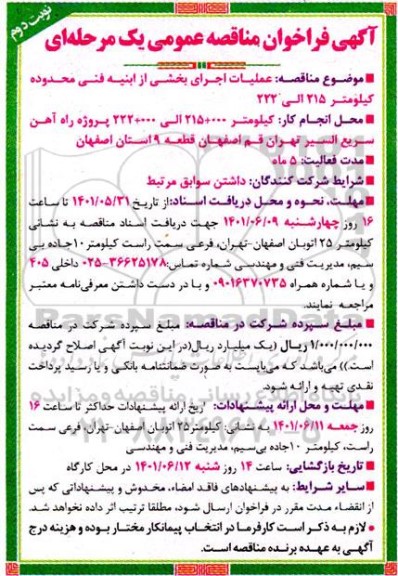 نوبت دوم
آگهی فراخوان مناقصه عمومی یک مرحله‌ای
■موضوع مناقصه: عملیات اجرای بخشی از ابنیه فنی محدوده
کیلومتر ۲۱۵ الی ۲۲۲
■محل انجام کار: کیلومتر ۲۱۵+۰۰۰ الی ۲۲۲+۰۰۰ پروژه راه آهن
سریع السیر تهران قم اصفهان قطعه ۹ استان اصفهان
■مدت فعالیت: ۵ ماه
■شرایط شرکت کنندگان: داشتن سوابق مرتبط
■مهلت، نحوه و محل دریافت اسناد: از تاریخ ۱۴۰۱/۰۵/۳۱ تا ساعت
۱۶ روز چهارشنبه ۱۴۰۱/۰۶/۰۹ جهت دریافت اسناد مناقصه به نشانی
کیلومتر ۲۵ اتوبان اصفهان-تهران، فرعی سمت راست کیلومتر ۱۰جاده بی
سیم، مدیریت فنی و مهندسی شماره تماس: ۳۶۶۲۵۱۲۸-۰۲۵ داخلی ۴۰۵
و یا شماره همراه ۰۹۰۱۶۳۷۰۷۳۵ و یا در دست داشتن معرفی‌نامه معتبر
مراجعه نمایند.
■مبلغ سپرده شرکت در مناقصه: مبلغ سپرده شرکت در مناقصه
۱/۰۰۰/۰۰۰/۰۰۰ ریال (یک میلیارد ریال(در این نوبت آگهی اصلاح گردیده
است)) می‌باشد که می‌بایست به صورت ضمانتنامه بانکی و یا رسید پرداخت
نقدی تهیه و ارائه شود.
■مهلت و محل ارائه پیشنهادات: تاریخ ارائه پیشنهادات حداکثر تا ساعت ۱۶
روز جمعه ۱۴۰۱/۰۶/۱۱ به نشانی: کیلومتر۲۵ اتوبان اصفهان-تهران، فرعی سمت
راست، کیلومتر ۱۰جاده بی‌سیم، مدیریت فنی و مهندسی
■تاریخ بازگشایی: ساعت ۱۴ روز شنبه ۱۴۰۱/۰۶/۱۲ در محل کارگاه
■سایر شرایط: به پیشنهادهای فاقد امضاء، مخدوش و پیشنهاداتی که پس
از انقضاء مدت مقرر در فراخوان ارسال شود، مطلقا ترتیب اثر داده نخواهد شد.
● لازم به ذکر است کارفرما در انتخاب پیمانکار مختار بوده و هزینه درج
آگهی به عهده برنده مناقصه است.
ParsNamadData